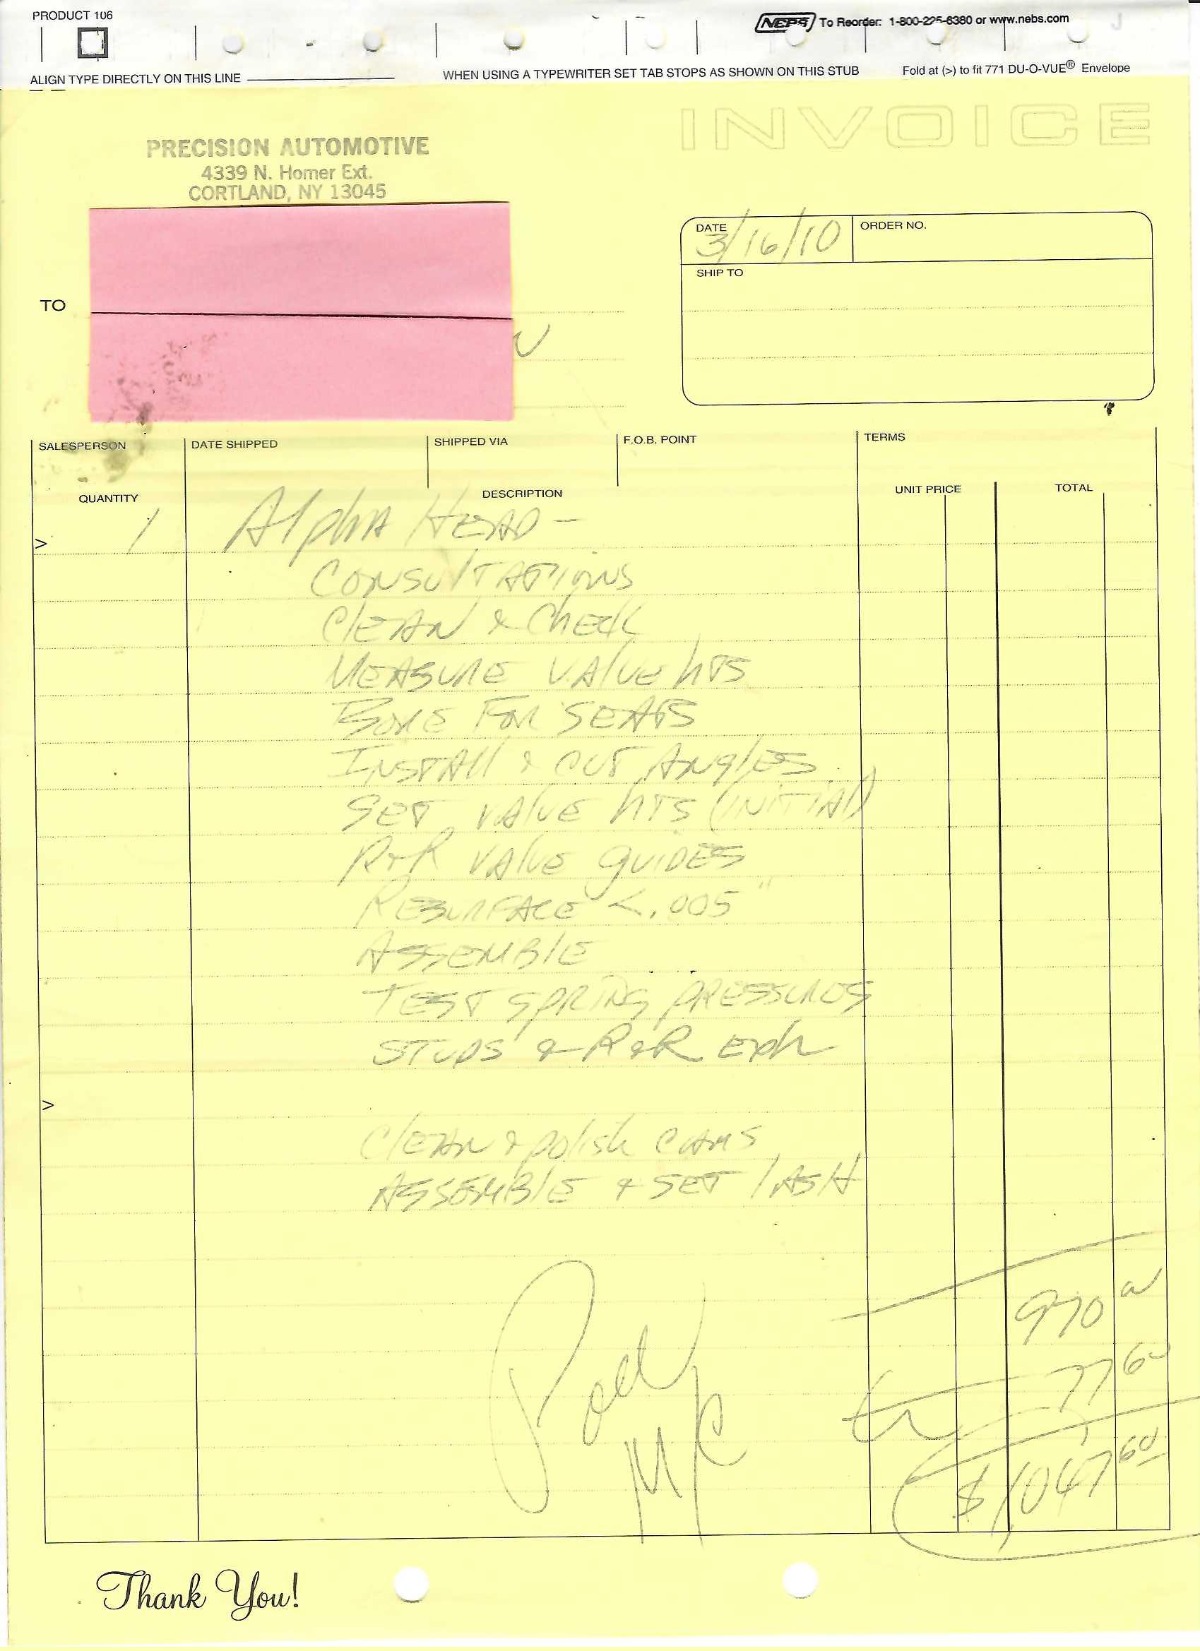 PRODUCT 106
NEBS To Reorder: 1-800-225-6380 or www.nebs.com
ALIGN TYPE DIRECTLY ON THIS LINE
WHEN USING A TYPEWRITER SET TAB STOPS AS SHOWN ON THIS STUB
Fold at (>) to fit 771 DU-O-VUE® Envelope
INVOICE
PRECISION AUTOMOTIVE
4339 N. Homer Ext.
CORTLAND, NY 13045
DATE 3/16/10
ORDER NO.
SHIP TO
TO
SALESPERSON DATE SHIPPED SHIPPED VIA F.O.B. POINT TERMS
QUANTITY DESCRIPTION UNIT PRICE TOTAL
> 1 Alpha HEAD -
CONSULTATIONS
CLEAN & CHECK
MEASURE VALVE HTS
BORE FOR SEATS
INSTALL & CUT ANGLES
SET VALVE HTS (INITIAL)
R+R VALVE GUIDES
RESURFACE <.005"
ASSEMBLE
TEST SPRING PRESSURES
STUDS & R&R Exh
>
CLEAN & polish CAMS
ASSEMBLE + SET LASH
970 00
77 60
$1047 60
Paid
MC
Thank You!